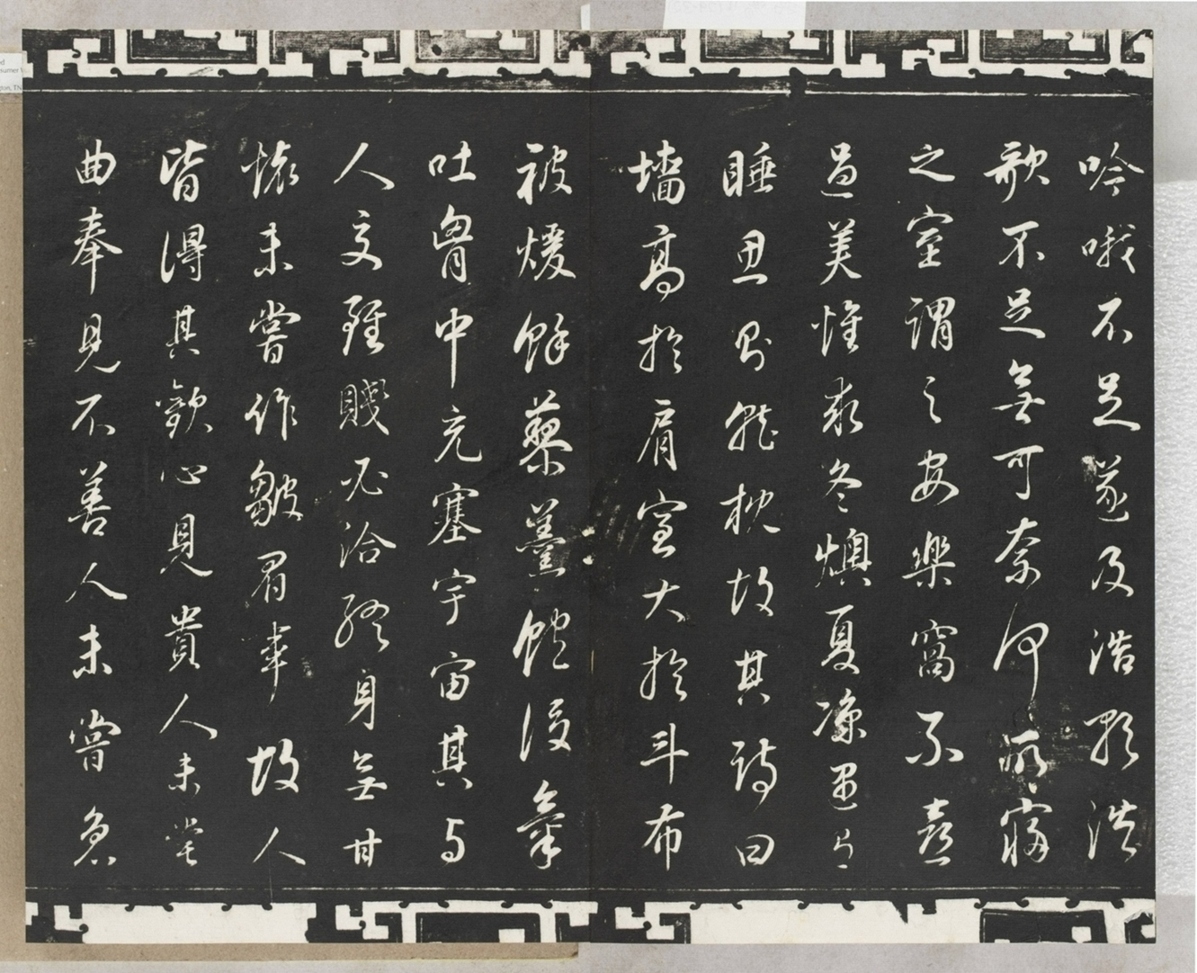 吟哦不足遂及浩歌浩
歌不足無可奈何所寢
之室謂之安樂窩不喜
過美惟求冬燠夏凉遇有
睡思則就枕故其詩曰
墻高於肩室大於斗布
被煖餘藜羹飽後氣
吐胷中充塞宇宙其與
人交雖賤必洽終身無甘
壞未嘗作皺眉事故人
皆得其歡心見貴人未嘗
曲奉見不善人未嘗急